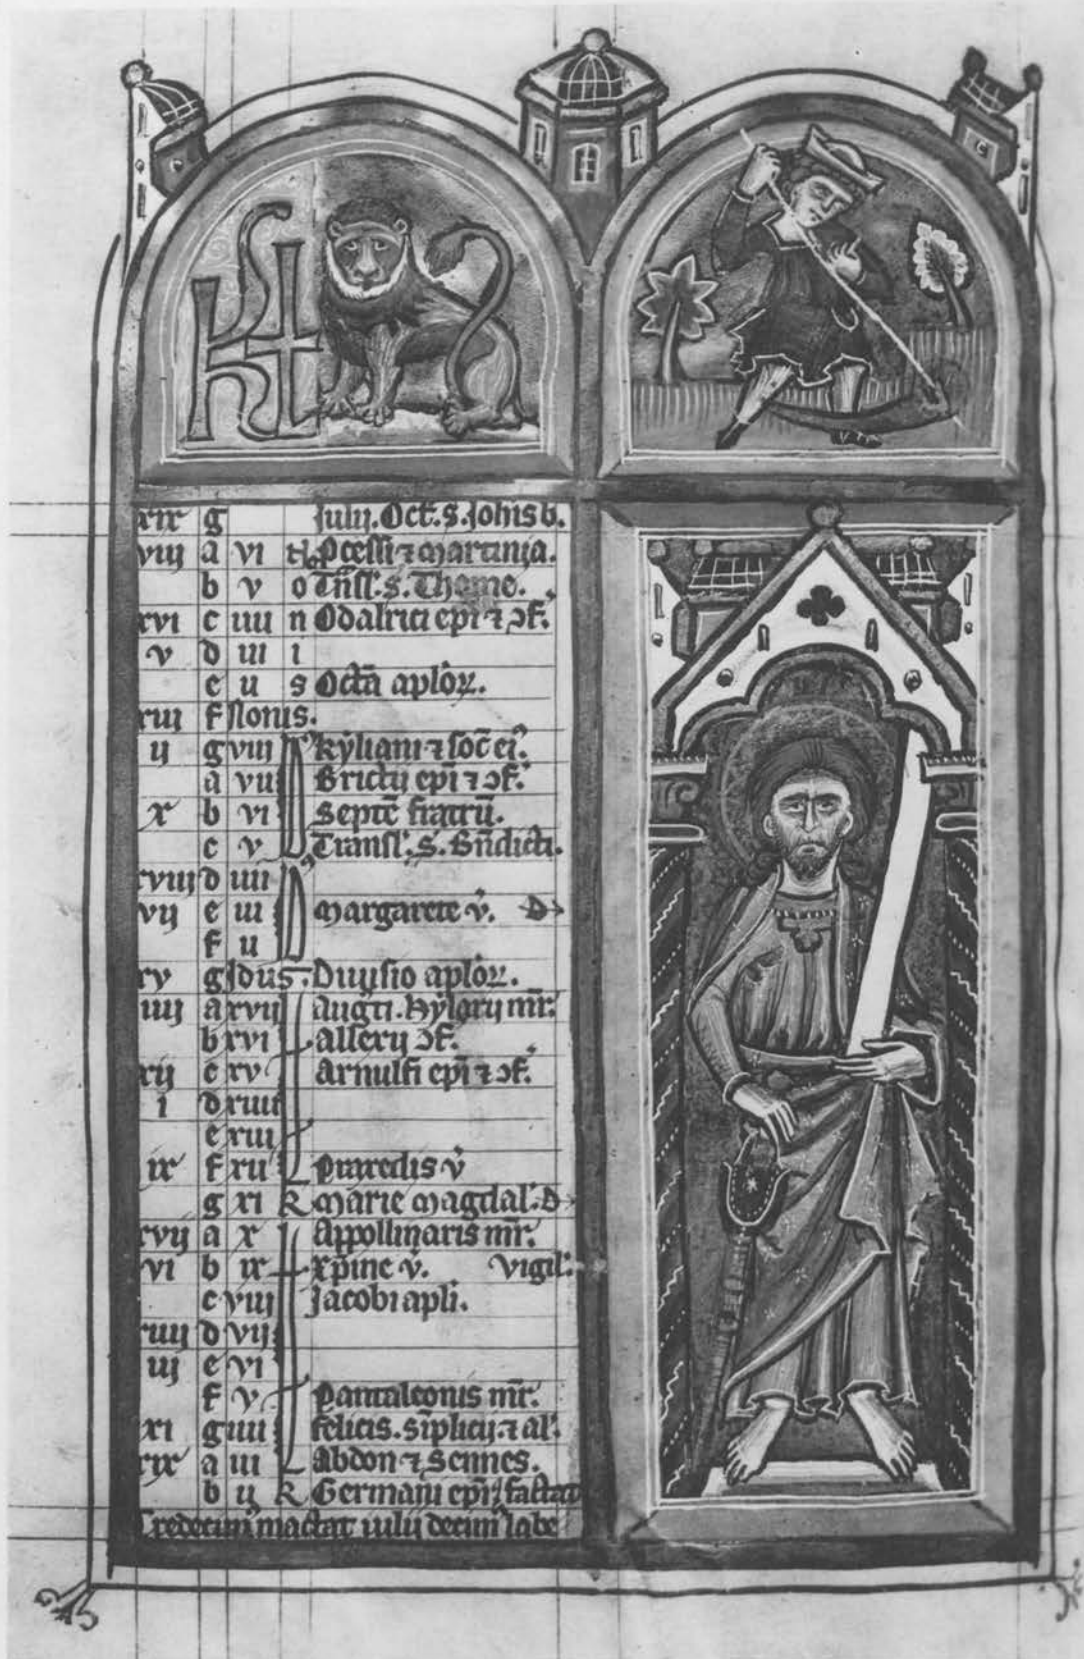 KL
xix g Julij. Oct. s. Johis b.
viij a vi t Pcessi ⁊ martinia.
b v o Tnsl. s. Thome.
xvi c iiii n Odalrici epi ⁊ ↄf.
v d iii i
e ii s Octa aplor.
xiii f Nonis.
ii g viii kyliani ⁊ soc ei.
a vii Brictij epi ⁊ ↄf.
x b vi Septe fratru.
c v Transl. S. Bndicti.
xviij d iiii
vij e iii margarete v. D
f ii
xv g Idus. Diuisio aplor.
iiij a xvij augti. hylarij mr.
b xvi allexij ↄf.
xij c xv arnulfi epi ⁊ ↄf.
i d xiiii
e xiii
ix f xii praxedis v
g xi k marie magdal. D
xvij a x appollinaris mr.
vi b ix xpine v. vigil.
c viij Jacobi apli.
xiiij d vij
iij e vi
f v pantaleonis mr.
xi g iiii felicis. siplicij. ⁊ al.
xix a iii abdon ⁊ sennes.
b ij k Germani epi
Tredecim mactat iulij decim labe